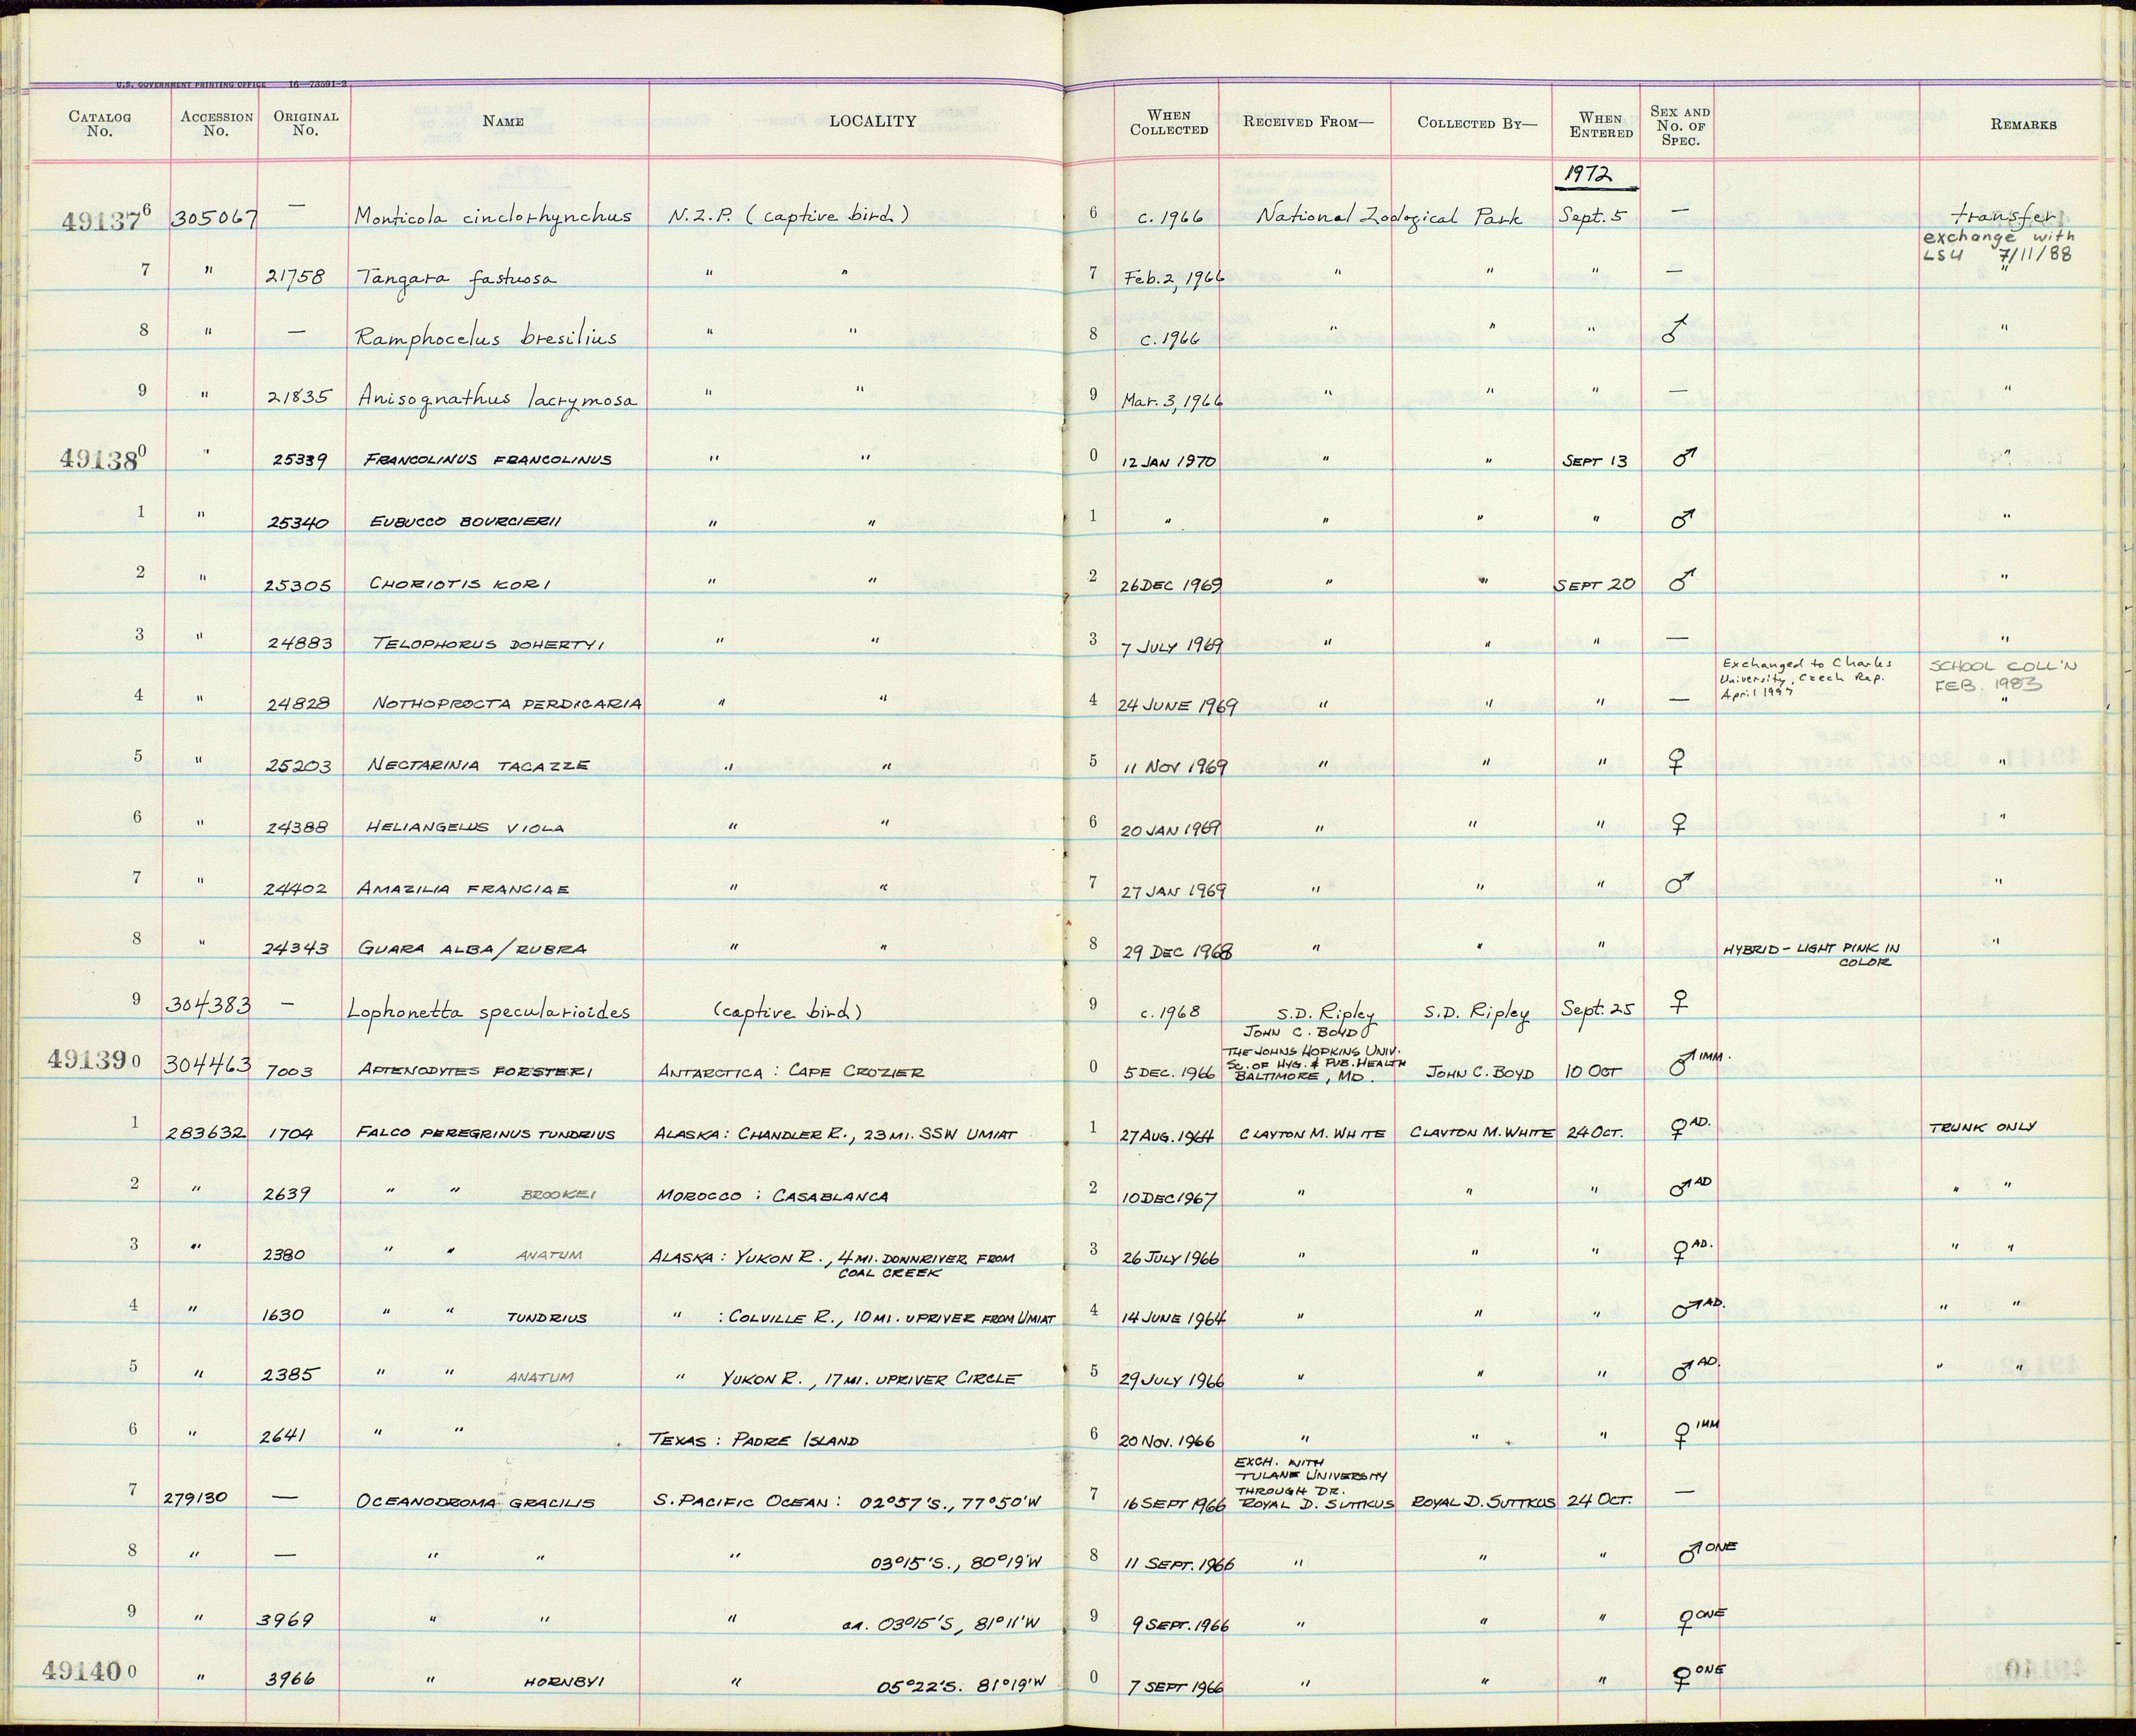 U.S. GOVERNMENT PRINTING OFFICE 16—73591-2
CATALOG No. ACCESSION No. ORIGINAL No. NAME LOCALITY WHEN COLLECTED RECEIVED FROM— COLLECTED BY— WHEN ENTERED SEX AND No. OF SPEC. REMARKS
1972
491376 305067 — Monticola cinclorhynchus N.Z.P. (captive bird) 6 c. 1966 National Zoological Park Sept. 5 — transfer
exchange with
LSU 7/11/88
7 " 21758 Tangara fastuosa " " 7 Feb. 2, 1966 " " " — "
8 " — Ramphocelus bresilius " " 8 c. 1966 " " " ♂ "
9 " 21835 Anisognathus lacrymosa " " 9 Mar. 3, 1966 " " " — "
491380 " 25339 FRANCOLINUS FRANCOLINUS " " 0 12 JAN 1970 " " SEPT 13 ♂ "
1 " 25340 EUBUCCO BOURCIERII " " 1 " " " " ♂ "
2 " 25305 CHORIOTIS KORI " " 2 26 DEC 1969 " " SEPT 20 ♂ "
3 " 24883 TELOPHORUS DOHERTYI " " 3 7 JULY 1969 " " " — "
Exchanged to Charles University, Czech Rep. April 1997
SCHOOL COLL'N FEB. 1983
4 " 24828 NOTHOPROCTA PERDICARIA " " 4 24 JUNE 1969 " " " — "
5 " 25203 NECTARINIA TACAZZE " " 5 11 NOV 1969 " " " ♀ "
6 " 24388 HELIANGELUS VIOLA " " 6 20 JAN 1969 " " " ♀ "
7 " 24402 AMAZILIA FRANCIAE " " 7 27 JAN 1969 " " " ♂ "
8 " 24343 GUARA ALBA/RUBRA " " 8 29 DEC 1968 " " " HYBRID – LIGHT PINK IN "
COLOR
9 304383 — Lophonetta specularioides (captive bird) 9 c. 1968 S.D. Ripley S.D. Ripley Sept. 25 ♀
JOHN C. BOYD
THE JOHNS HOPKINS UNIV.
SC. OF HYG. & PUB. HEALTH
491390 304463 7003 APTENODYTES FORSTERI ANTARCTICA : CAPE CROZIER 0 5 DEC. 1966 BALTIMORE, MD. JOHN C. BOYD 10 OCT ♂ IMM.
1 283632 1704 FALCO PEREGRINUS TUNDRIUS ALASKA : CHANDLER R., 23 MI. SSW UMIAT 1 27 AUG. 1964 CLAYTON M. WHITE CLAYTON M. WHITE 24 OCT. ♀ AD. TRUNK ONLY
2 " 2639 " " BROOKEI MOROCCO : CASABLANCA 2 10 DEC 1967 " " " ♂ AD " "
3 " 2380 " " ANATUM ALASKA : YUKON R., 4 MI. DOWNRIVER FROM 3 26 JULY 1966 " " " ♀ AD. " "
COAL CREEK
4 " 1630 " " TUNDRIUS " : COLVILLE R., 10 MI. UPRIVER FROM UMIAT 4 14 JUNE 1964 " " " ♂ AD. " "
5 " 2385 " " ANATUM " YUKON R., 17 MI. UPRIVER CIRCLE 5 29 JULY 1966 " " " ♂ AD. " "
6 " 2641 " " TEXAS : PADRE ISLAND 6 20 NOV. 1966 " " " ♀ IMM
EXCH. WITH
TULANE UNIVERSITY
THROUGH DR.
7 279130 — OCEANODROMA GRACILIS S. PACIFIC OCEAN : 02°57'S., 77°50'W 7 16 SEPT 1966 ROYAL D. SUTTKUS ROYAL D. SUTTKUS 24 OCT. —
8 " — " " " 03°15'S., 80°19'W 8 11 SEPT. 1966 " " " ♂ ONE
9 " 3969 " " " ca. 03°15'S, 81°11'W 9 9 SEPT. 1966 " " " ♀ ONE
491400 " 3966 " HORNBYI " 05°22'S. 81°19'W 0 7 SEPT 1966 " " " ♀ ONE